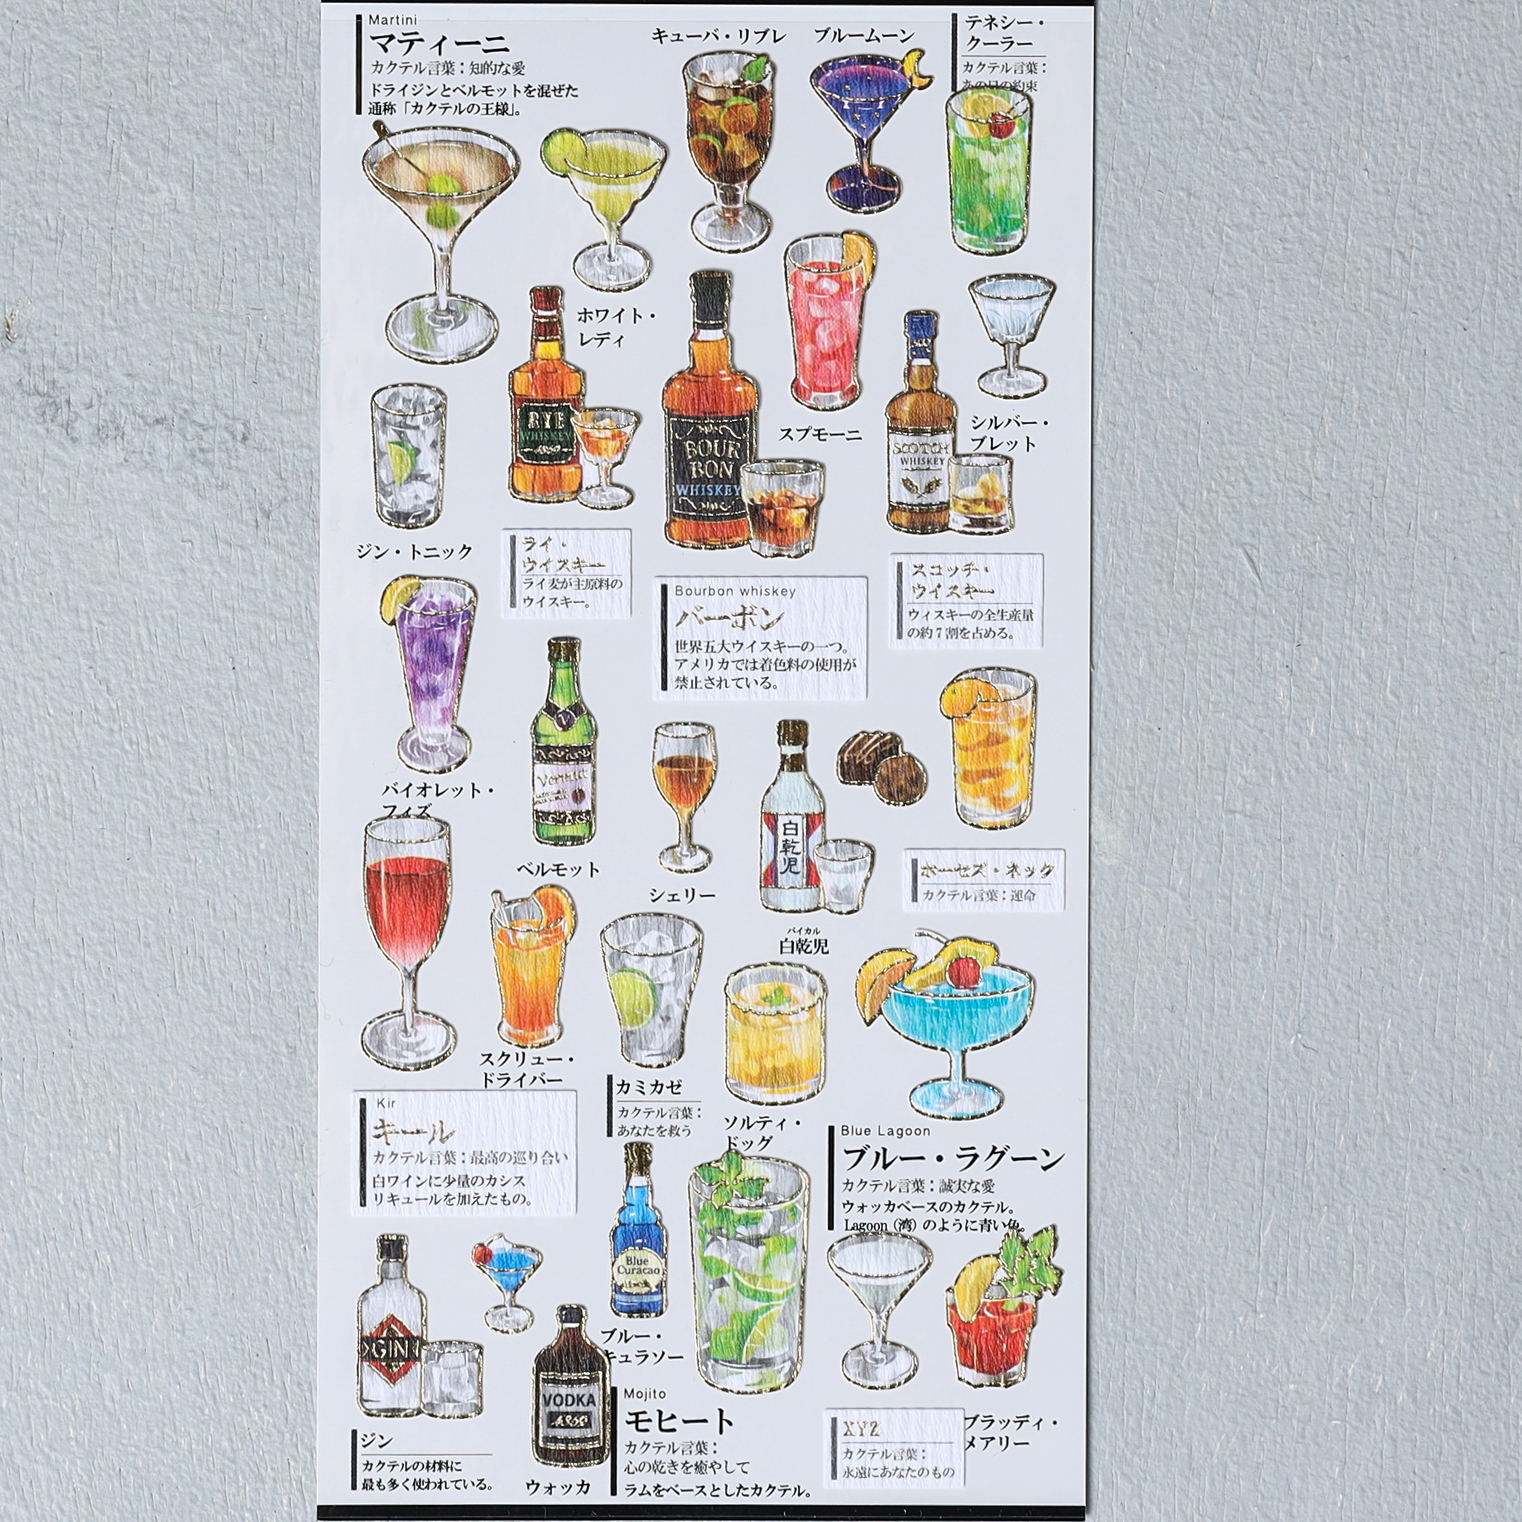 Martini
マティーニ
カクテル言葉：知的な愛
ドライジンとベルモットを混ぜた
通称「カクテルの王様」。
キューバ・リブレ
ブルームーン
テネシー・
クーラー
カクテル言葉：
あの日の約束
ホワイト・
レディ
RYE
WHISKEY
BOUR
BON
WHISKEY
スプモーニ
SCOTCH
WHISKEY
シルバー・
ブレット
ジン・トニック
ライ・
ウイスキー
ライ麦が主原料の
ウイスキー。
Bourbon whiskey
バーボン
世界五大ウイスキーの一つ。
アメリカでは着色料の使用が
禁止されている。
スコッチ・
ウイスキー
ウィスキーの全生産量
の約7割を占める。
バイオレット・
フィズ
V
ベルモット
シェリー
白乾児
バイカル
白乾児
ホーセズ・ネック
カクテル言葉：運命
スクリュー・
ドライバー
カミカゼ
カクテル言葉：
あなたを救う
ソルティ・
ドッグ
Kir
キール
カクテル言葉：最高の巡り合い
白ワインに少量のカシス
リキュールを加えたもの。
Blue Lagoon
ブルー・ラグーン
カクテル言葉：誠実な愛
ウォッカベースのカクテル。
Lagoon（湾）のように青い色。
GIN
Blue
Curacao
ブルー・
キュラソー
VODKA
ジン
カクテルの材料に
最も多く使われている。
ウォッカ
Mojito
モヒート
カクテル言葉：
心の乾きを癒やして
ラムをベースとしたカクテル。
XYZ
カクテル言葉：
永遠にあなたのもの
ブラッディ・
メアリー